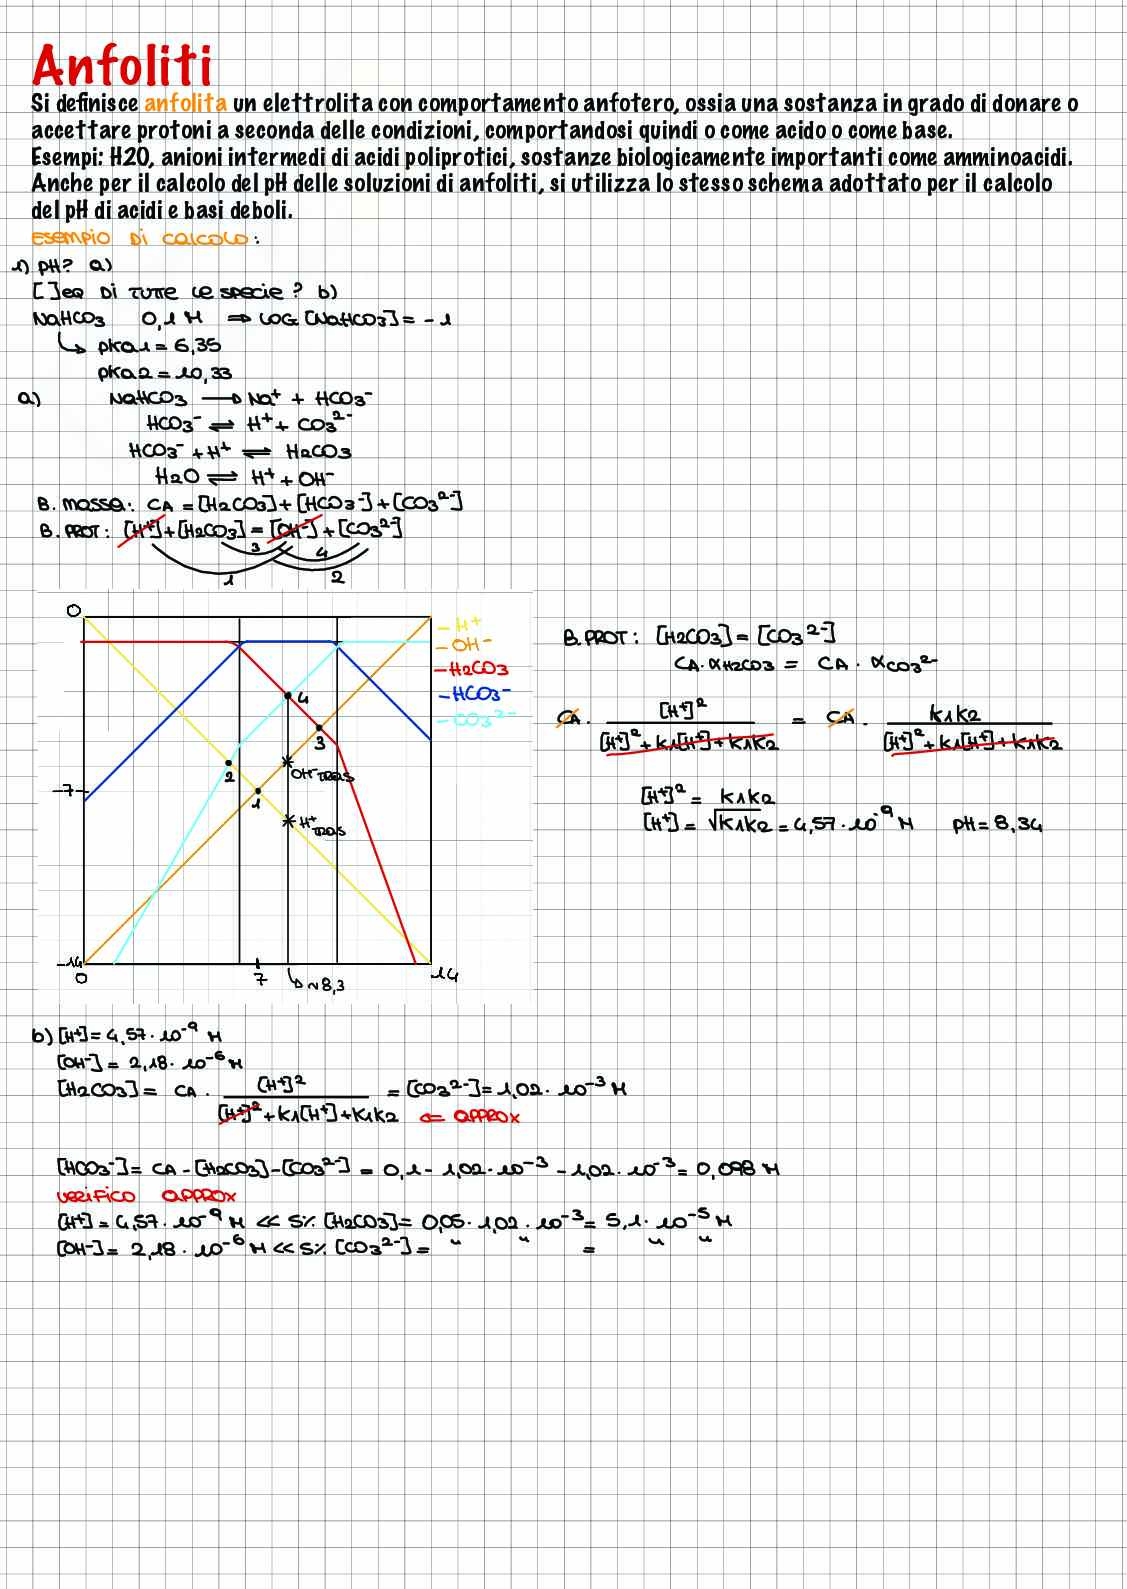 Anfoliti
Si definisce anfolita un elettrolita con comportamento anfotero, ossia una sostanza in grado di donare o
accettare protoni a seconda delle condizioni, comportandosi quindi o come acido o come base.
Esempi: H2O, anioni intermedi di acidi poliprotici, sostanze biologicamente importanti come amminoacidi.
Anche per il calcolo del pH delle soluzioni di anfoliti, si utilizza lo stesso schema adottato per il calcolo
del pH di acidi e basi deboli.
ESEMPIO DI CALCOLO:
1) pH? a)
[ ]eq DI TUTTE LE SPECIE? b)
NaHCO3 0,1 M ⇒ LOG [NaHCO3] = -1
↳ pKa1 = 6,35
pKa2 = 10,33
a) NaHCO3 → Na⁺ + HCO3⁻
HCO3⁻ ⇌ H⁺ + CO3²⁻
HCO3⁻ + H⁺ ⇌ H2CO3
H2O ⇌ H⁺ + OH⁻
B. MASSA: CA = [H2CO3] + [HCO3⁻] + [CO3²⁻]
B. PROT: [H⁺] + [H2CO3] = [OH⁻] + [CO3²⁻]
3 4
1 2
0
- H⁺
- OH⁻
- H2CO3
- HCO3⁻
- CO3²⁻
4
3
2
1
OH⁻ TRAS
H⁺ TRAS
-7
-14
0 7 14
↳ ~8,3
B. PROT: [H2CO3] = [CO3²⁻]
CA · αH2CO3 = CA · αCO3²⁻
CA · [H⁺]² / [H⁺]² + K1[H⁺] + K1K2 = CA · K1K2 / [H⁺]² + K1[H⁺] + K1K2
[H⁺]² = K1K2
[H⁺] = √K1K2 = 4,57 · 10⁻⁹ M pH = 8,34
b) [H⁺] = 4,57 · 10⁻⁹ M
[OH⁻] = 2,18 · 10⁻⁶ M
[H2CO3] = CA · [H⁺]² / [H⁺]² + K1[H⁺] + K1K2 = [CO3²⁻] = 1,02 · 10⁻³ M
⇐ APPROX
[HCO3⁻] = CA - [H2CO3] - [CO3²⁻] = 0,1 - 1,02 · 10⁻³ - 1,02 · 10⁻³ = 0,098 M
VERIFICO APPROX
[H⁺] = 4,57 · 10⁻⁹ M << 5% [H2CO3] = 0,05 · 1,02 · 10⁻³ = 5,1 · 10⁻⁵ M
[OH⁻] = 2,18 · 10⁻⁶ M << 5% [CO3²⁻] = " " = " "